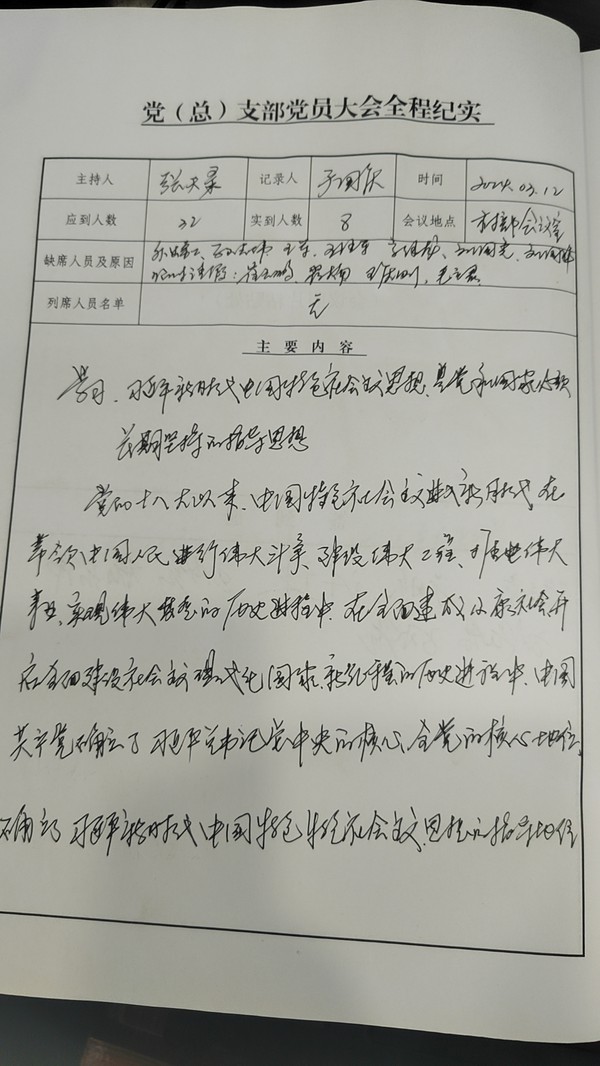 党（总）支部党员大会全程纪实
主持人 张天录 记录人 于国庆 时间 2024.03.12
应到人数 32 实到人数 8 会议地点 会议室
缺席人员及原因
列席人员名单 无
主要内容
学习、习近平新时代中国特色社会主义思想、是党和国家必须
长期坚持的指导思想
党的十八大以来、中国特色社会主义进入新时代、在
带领中国人民进行伟大斗争、建设伟大工程、推进伟大
事业、实现伟大梦想的历史进程中、在全面建成小康社会开
启全面建设社会主义现代化国家、新征程的历史进程中、中国
共产党确立了习近平总书记党中央的核心、全党的核心地位、
确立了习近平新时代中国特色特色社会主义思想的指导地位